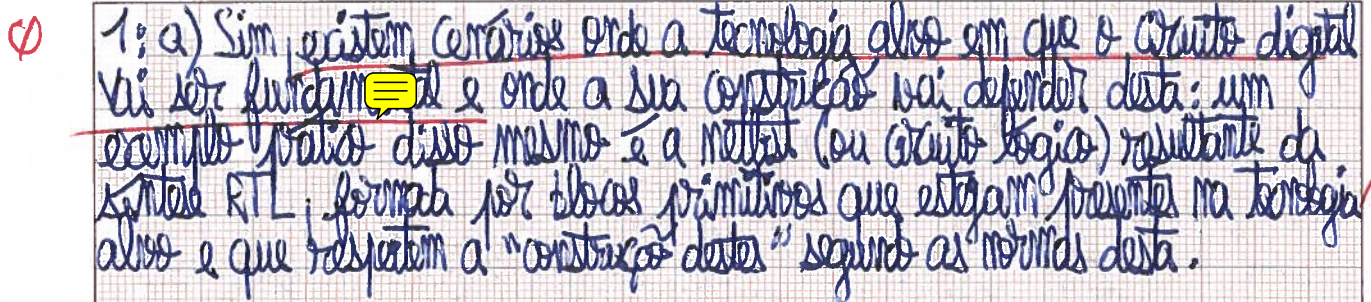 1: a) Sim, existem cenários onde a tecnologia alvo em que o circuito digital
vai ser e onde a sua construção vai depender desta: um
exemplo prático disso mesmo é a netlist (ou circuito lógico) resultante da
síntese RTL, formada por blocos primitivos que estejam presentes na tecnologia
alvo e que respeitem a "construção destes" segundo as normas desta.